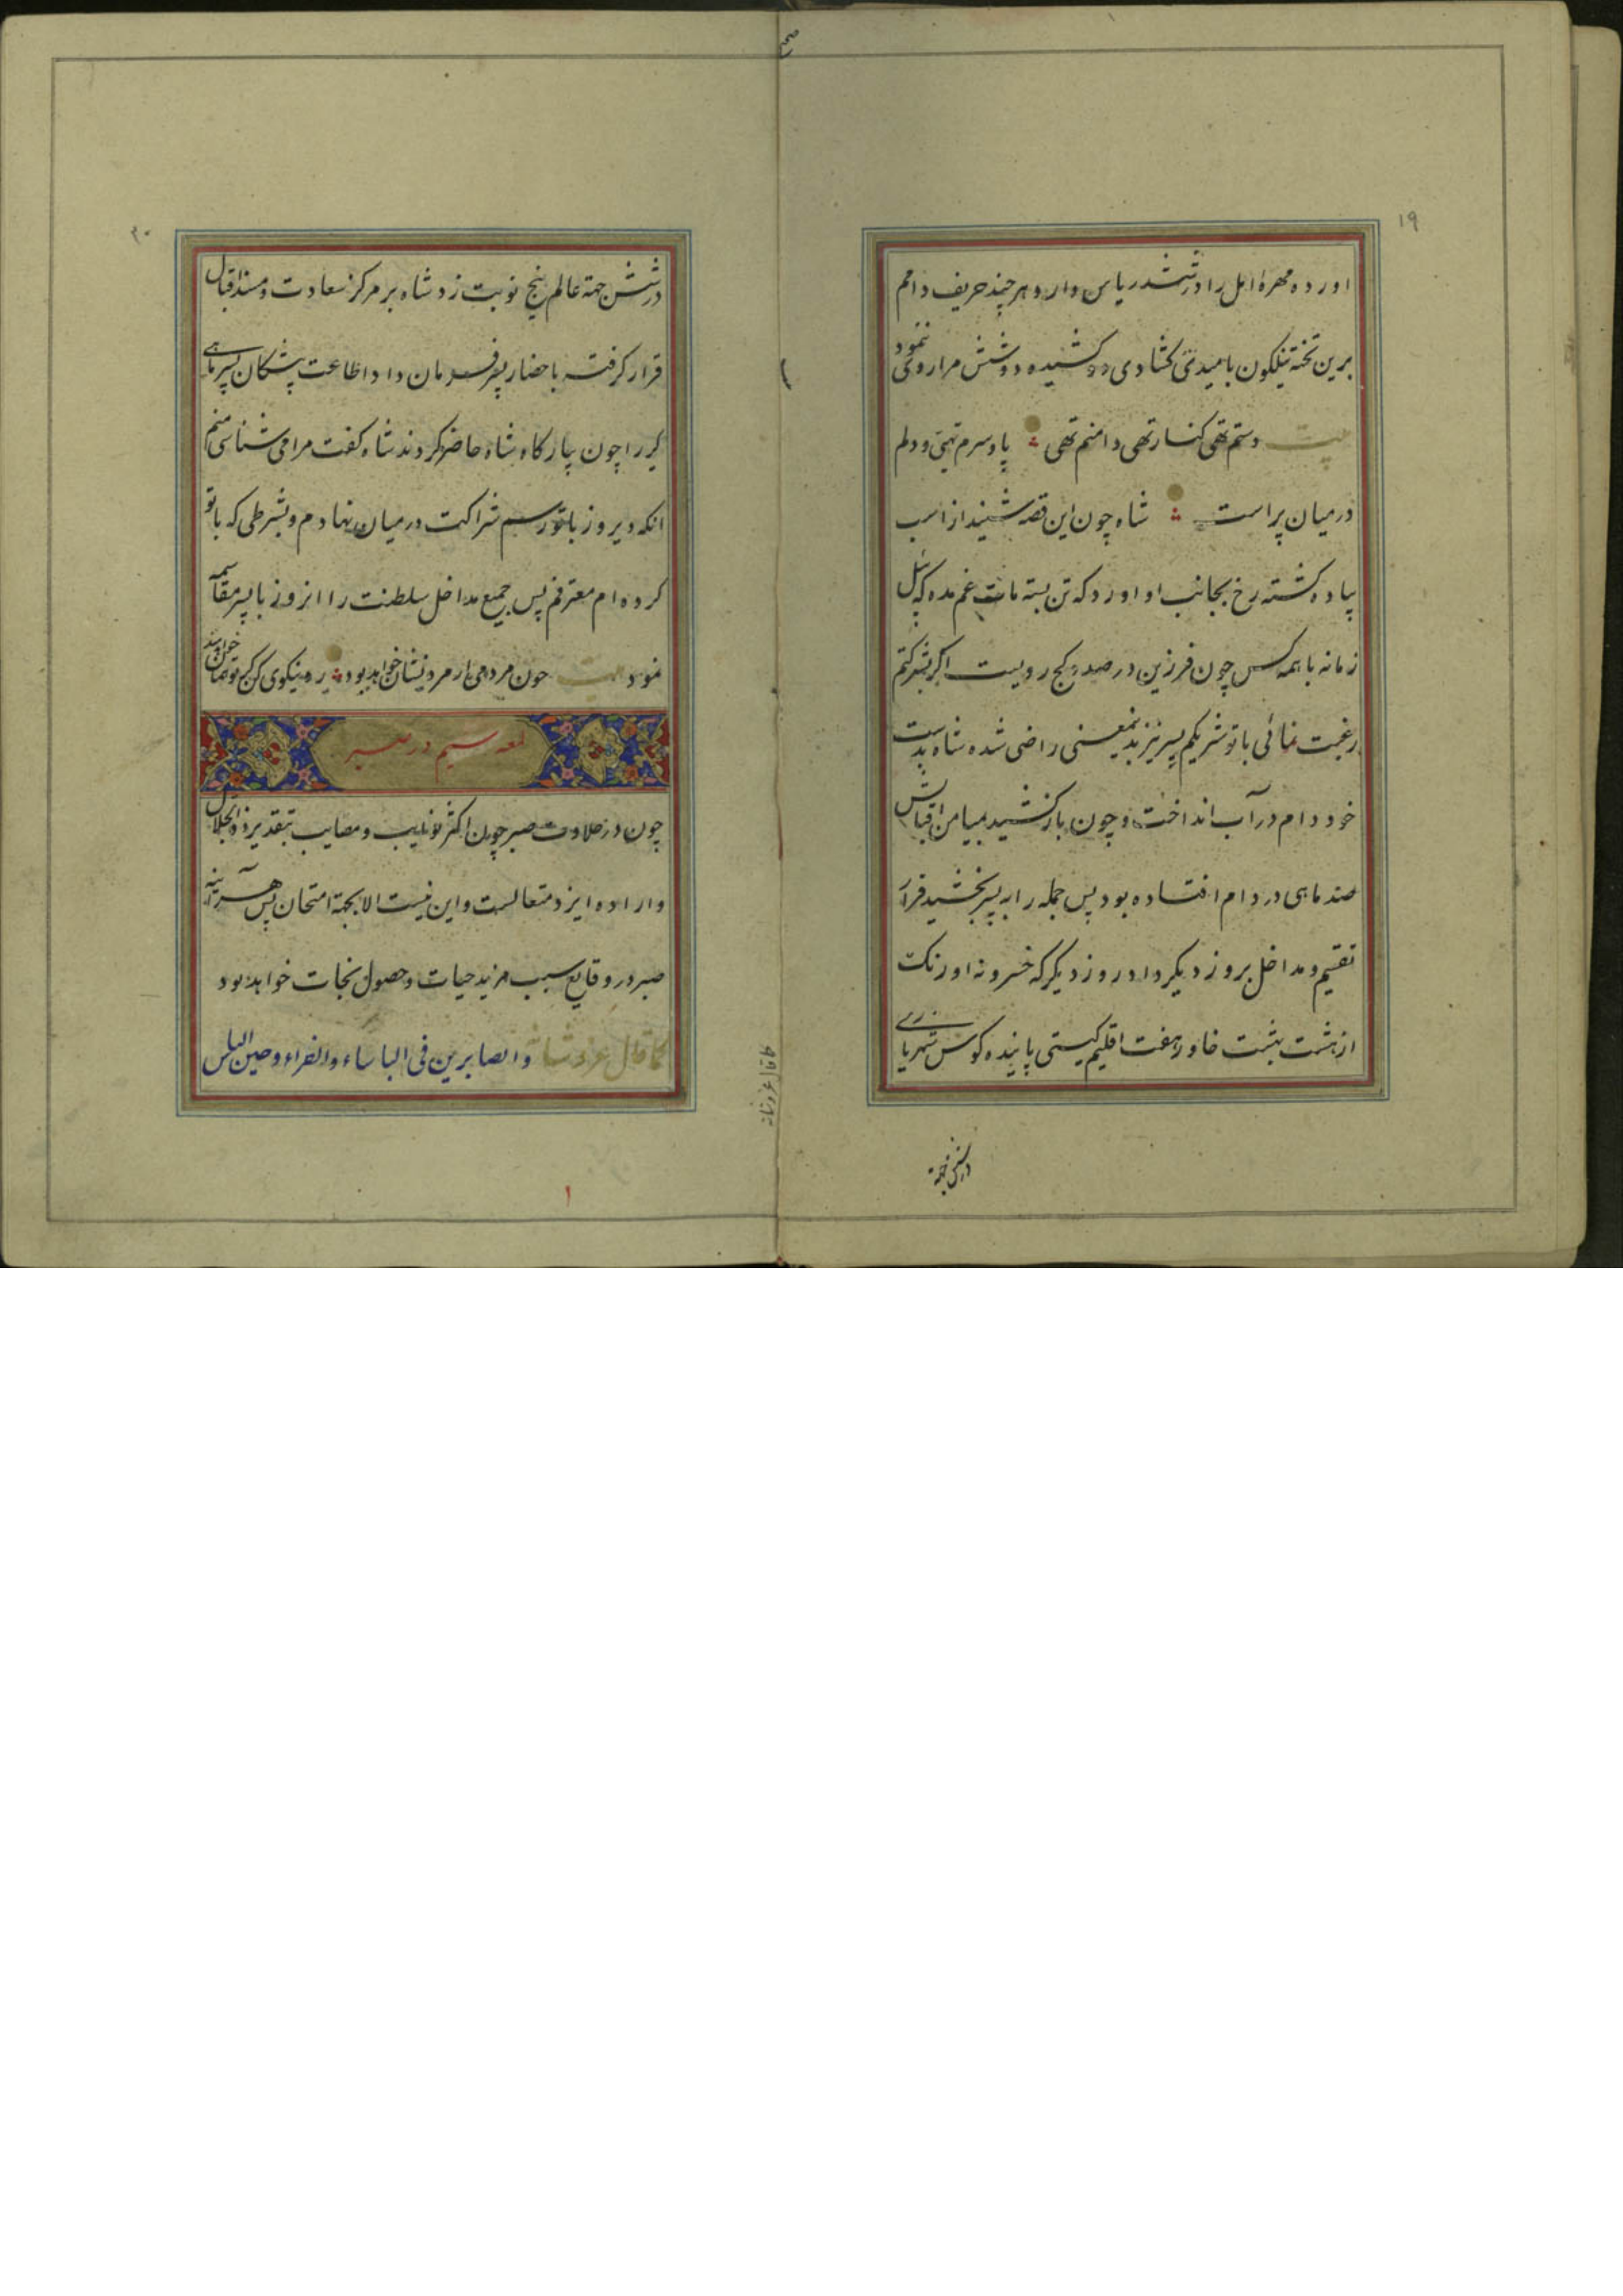 ۱۹
اورده مهرهٔ امل را در ششدر یاس دارد و هر چند حریف دامم
برین تخته نیلگون بامیدی کشادی دو کشیده دو شش مرا روی ننمود
بیت دستم تهی کنار تهی دامنم تهی پا و سرم تهی و دلم
در میان پر است شاه چون این قصه شنید از اسب
پیاده کشته رخ بجانب او اورد که تن بسته مات غم مده که پیل
زمانه با همه کس چون فرزین در صدد کج رویست اکر بشرکتم
رغبت نمائی با تو شریکم پسر نیز بدینمعنی راضی شده شاه بدست
خود دام در آب انداخت و چون باز کشید بمیامن اقبالش
صد ماهی در دام افتاده بود پس جمله را به پسر بخشید قرار
تقسیم و مداخل بروز دیکر داد روز دیکر که خسرو نه اورنک
از هشت بهشت خاور هفت اقلیم کیتی پاینده کوس شهریاری
در شش جهة
۲۰
در شش جهة عالم پنج نوبت زد شاه بر مرکز سعادت و مسند اقبال
قرار کرفته باحضار پسر فرمان داد اطاعت پیشکان پسر ماهی
کیر را چون ببارکاه شاه حاضر کردند شاه کفت مرا می شناسی منم
انکه دیروز با تو رسم شراکت در میان نهادم و بشرطی که با تو
کرده ام معترفم پس جمیع مداخل سلطنت را انروز با پسر مقاسمه
نمود بیت چون مردمی ار مرد نشان خواهد بود ره نیکوی کن که توصان خواهند
لمعه سیم در صبر
چون در حلاوت صبر چون اکثر نوایب و مصایب بتقدیر ذوالجلال
و اراده ایزد متعالست و این نیست الا بجهة امتحان پس هر آینه
صبر در وقایع سبب مزید حیات و حصول نجات خواهد بود
کما قال عز شانه والصابرین فی الباساء والضراء و حین الباس